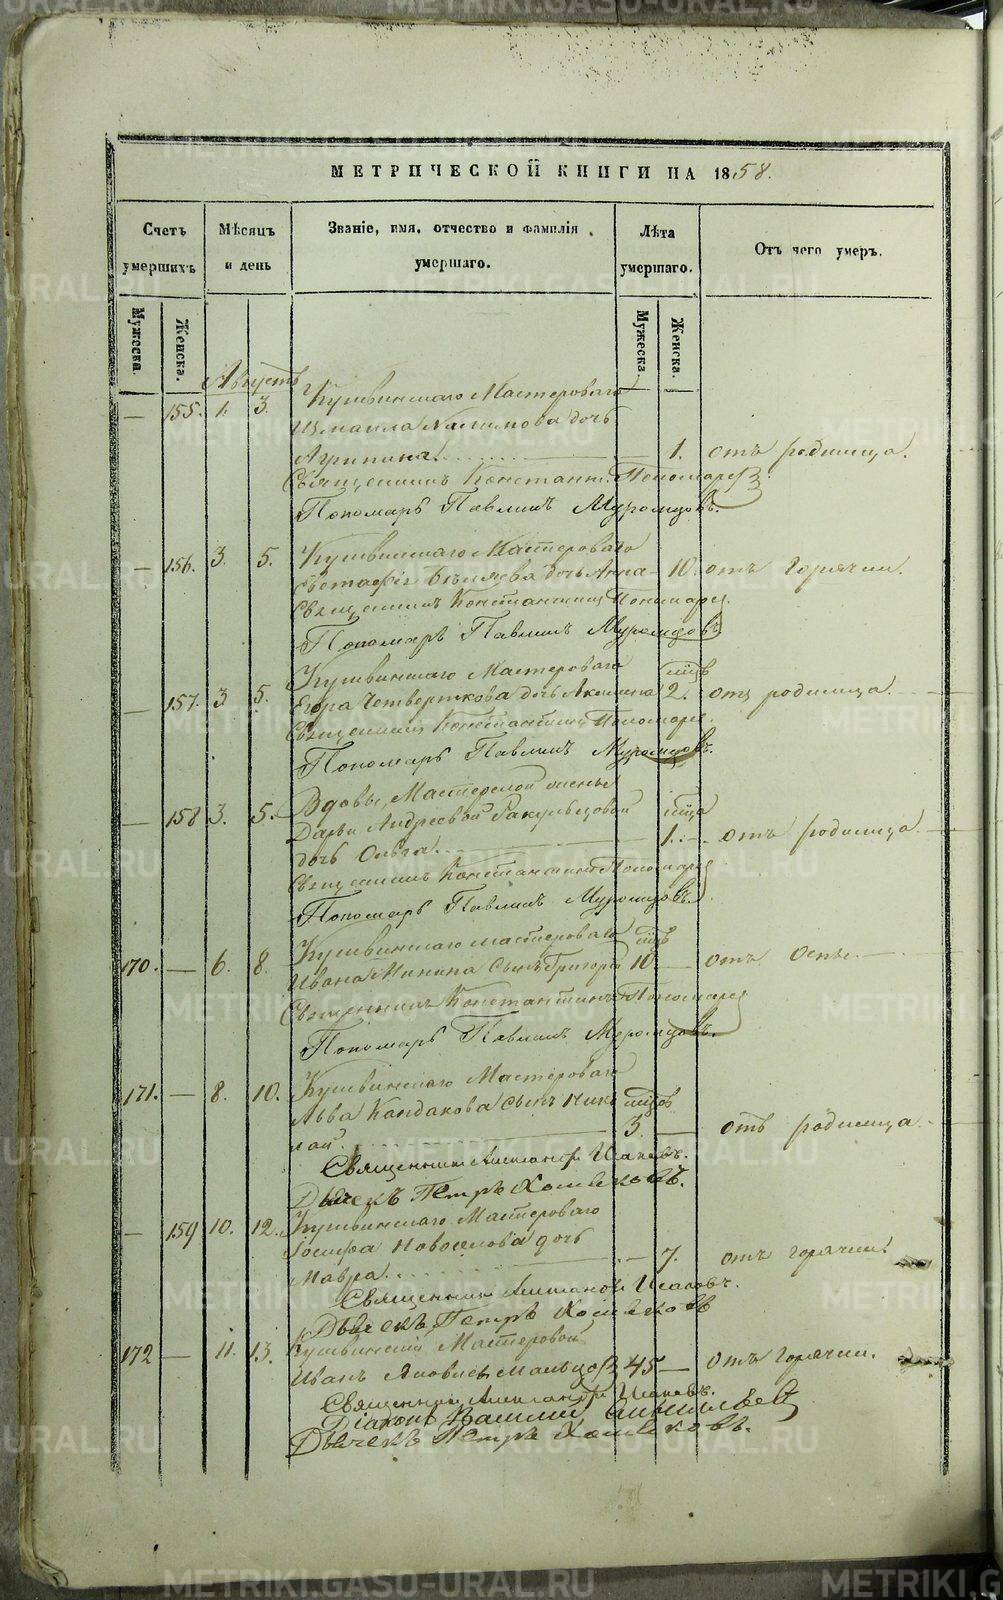 МЕТРИЧЕСКОЙ КНИГИ НА 1858.
Счетъ умершихъ
Мѣсяцъ и день
Званіе, имя, отчество и фамилія умершаго.
Лѣта умершаго.
Отъ чего умеръ.
Мужеска.
Женска.
Мужеска.
Женска.
Августъ
— 155. 1. 3. Кушвинскаго Мастероваго
Измаила дочь
Агрипина. — 1. отъ родимца.
Священникъ Констант. Пономаревъ
Пономарь Павлинъ Муромцовъ.
— 156. 3. 5. Кушвинскаго Мастероваго
Евстафія Бѣляева дочь Анна — 10. отъ Горячки.
Священникъ Константинъ Пономарев
Пономарь Павлинъ Муромцовъ
— 157. 3 5. Кушвинскаго Мастероваго
Егора Четверткова дочь Акилина 2. отъ родимца.
Священникъ Константинъ Пономарев
Пономарь Павлинъ Муромцовъ.
— 158 3. 5. Вдовы, Мастерской жены
Дарьи Андреевой
дочь Ольга. — 1. отъ родимца.
Священникъ Константинъ Пономарев
Пономарь Павлинъ Муромцовъ.
170. — 6. 8. Кушвинскаго мастероваго
Ивана Минина сынъ Григорій 10 — отъ Оспы.
Священникъ Константинъ Пономарев
Пономарь Павлинъ Муромцовъ.
171. — 8. 10. Кушвинскаго Мастероваго
Льва Кандакова сынъ Нико
лай. 3 — отъ родимца.
Священникъ Александръ Исаковъ.
Дьячекъ Петръ Хомяковъ.
— 159 10. 12. Кушвинскаго Мастероваго
Іосифа Новоселова дочь
Мавра. — 7. отъ горячки.
Священникъ Александръ Исаковъ.
Дьячекъ Петръ Хомяковъ
172 — 11. 13. Кушвинскій Мастеровой
Иванъ Яковлевъ Мальцовъ 45 — отъ Горячки.
Священникъ Александръ Исаковъ.
Діаконъ Василій
Дьячекъ Петръ Хомяковъ.
METRIKI.GASO-URAL.RU